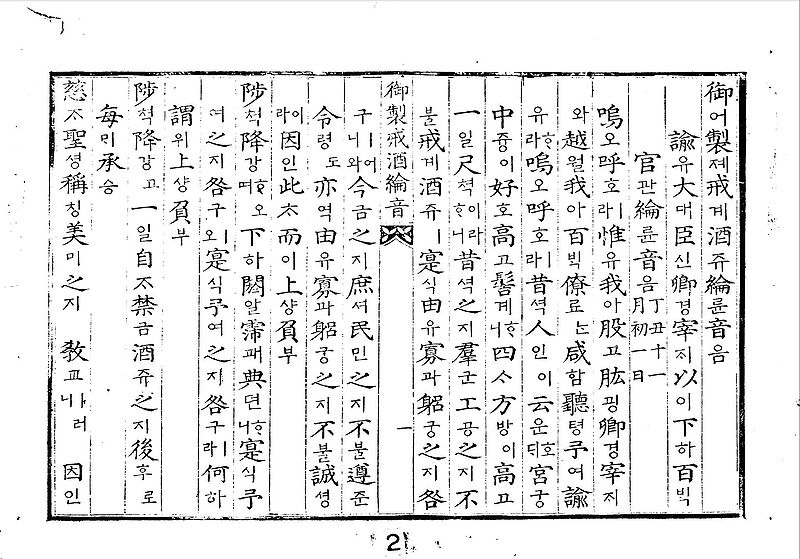 御어製졔戒계酒쥬綸륜音음
諭유大대臣신卿경宰ᄌᆡ以이下하百ᄇᆡᆨ
官관綸륜音음丁丑十一月初一日
嗚오呼호ㅣ라惟유我아股고肱굉卿경宰ᄌᆡ
와越월我아百ᄇᆡᆨ僚료ᄂᆞᆫ咸함聽텽予여諭
유ᄒᆞ라嗚오呼호ㅣ라昔셕人인이云운호ᄃᆡ宮궁
中듕이好호高고髻계ᄒᆞ니四ᄉᆞ方방이高고
一일尺쳑이라ᄒᆞ니昔셕之지羣군工공之지不
블戒계酒쥬ㅣ寔식由유寡과躬궁之지咎
御製戒酒綸音 一
구ㅣ어니와今금之지庶셔民민之지不블遵준
令령도亦역由유寡과躬궁之지不블誠셩
이라因인此ᄎᆞ而이上샹負부
陟쳑降강ᄒᆞ오며下하閼알霈패典뎐ᄒᆞ니寔식予
여之지咎구ㅣ오寔식予여之지咎구ㅣ라何하
謂위上샹負부
陟쳑降강고一일自ᄌᆞ禁금酒쥬之지後후로
每ᄆᆡ承승
慈ᄌᆞ聖셩稱칭美미之지 敎교 因인
2